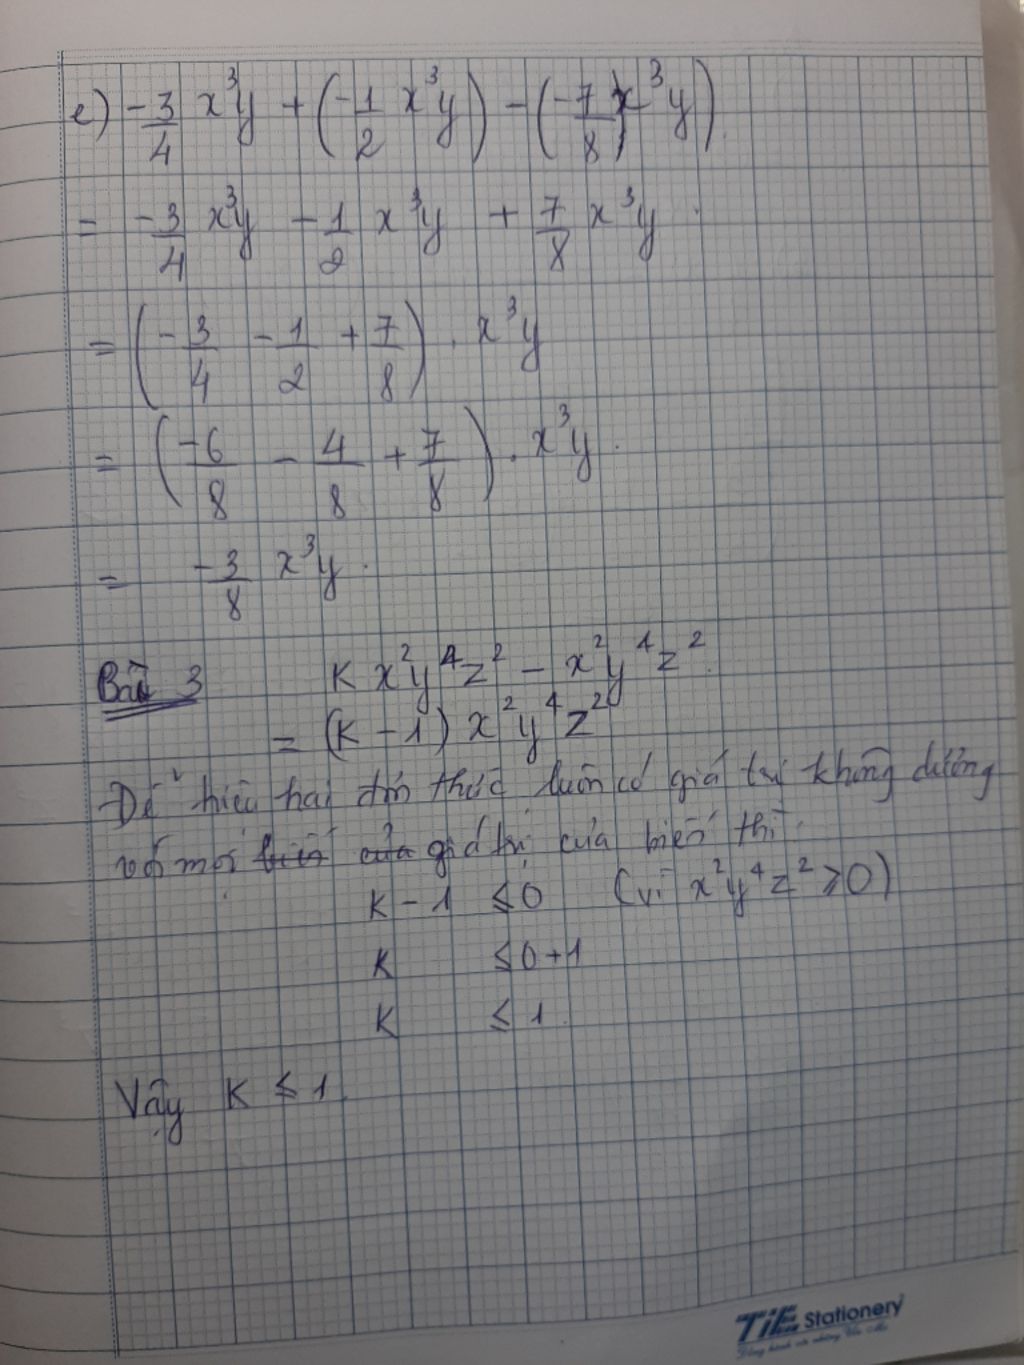 e) -3/4 x³y + (-1/2 x³y) - (-7/8 x³y)
= -3/4 x³y - 1/2 x³y + 7/8 x³y
= (-3/4 - 1/2 + 7/8) . x³y
= (-6/8 - 4/8 + 7/8) . x³y
= -3/8 x³y
Bài 3 K x²y⁴z² - x²y⁴z²
= (K - 1) x²y⁴z²
Để hiệu hai đơn thức luôn có giá trị không dương
với mọi biến của giá trị của biến thì
K - 1 ≤ 0 (vì x²y⁴z² ≥ 0)
K ≤ 0 + 1
K ≤ 1
Vậy K ≤ 1
TiE Stationery